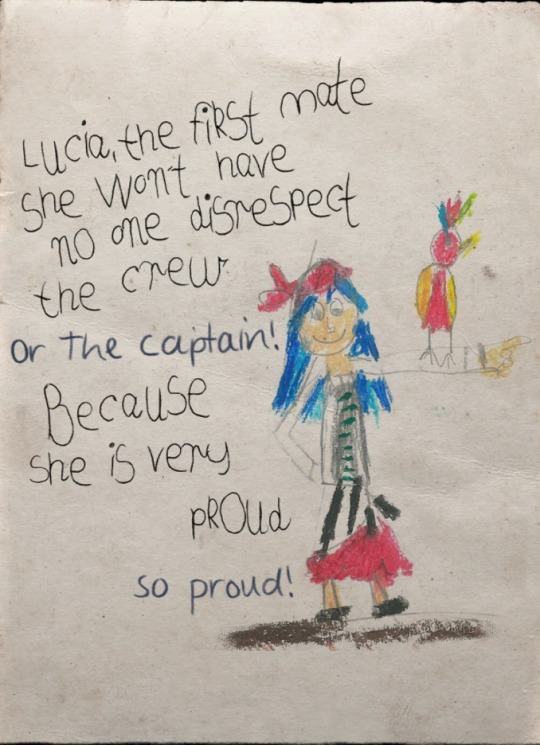 Lucia, the first mate
she won't have
no one disrespect
the crew
or the captain!
Because
she is very
pROUd
so proud!